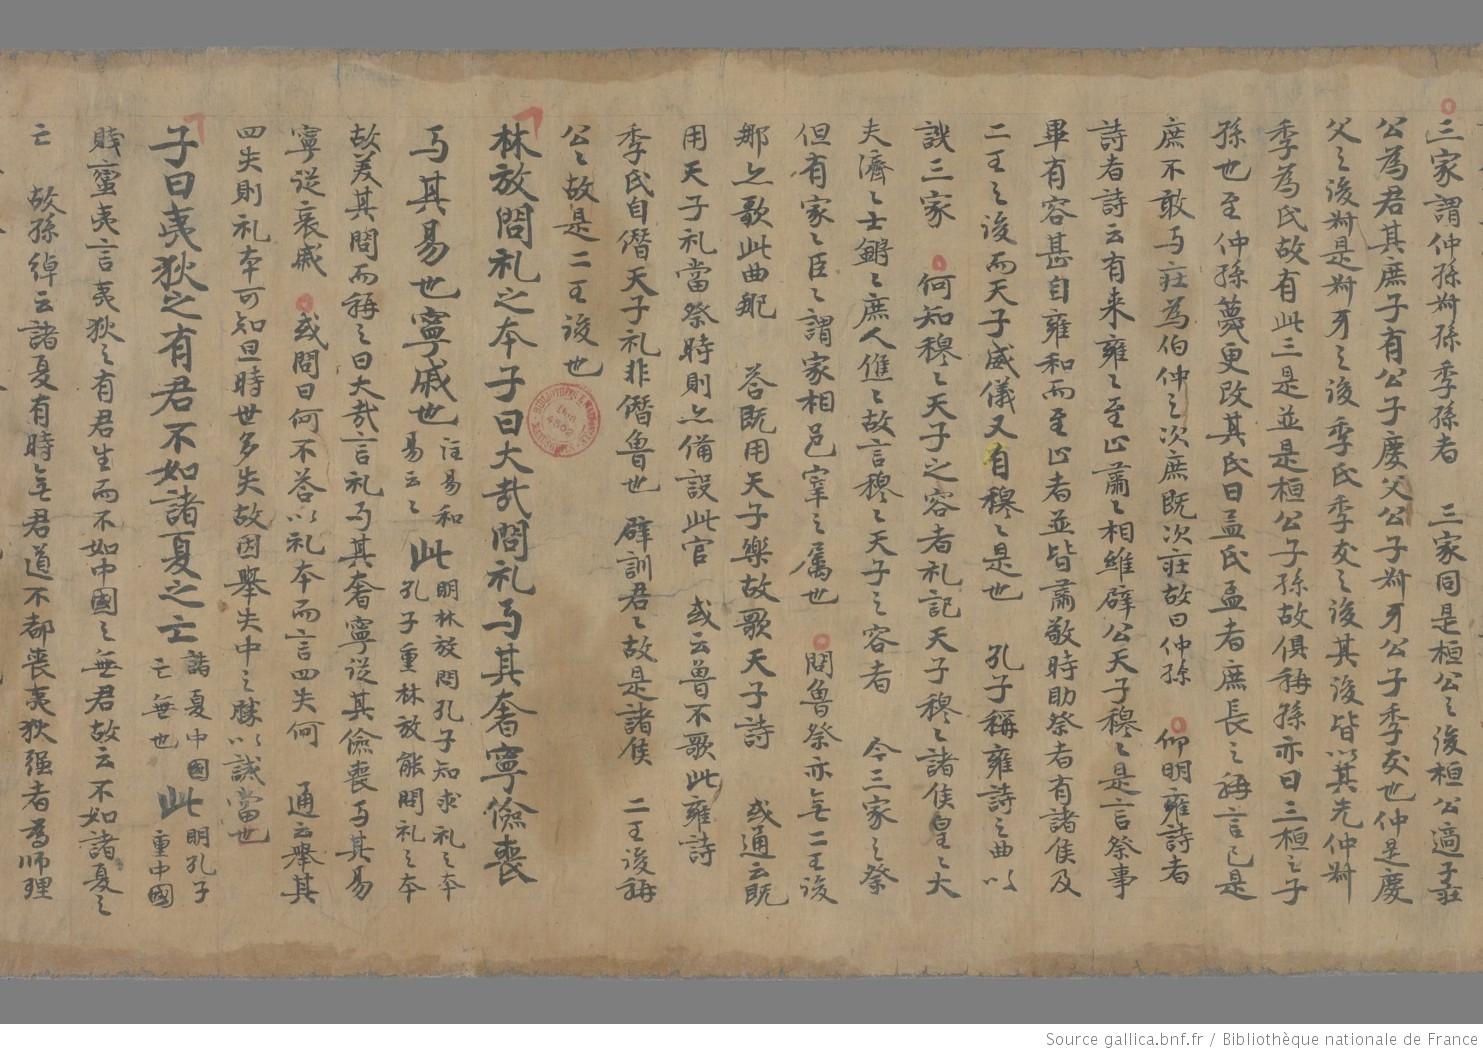 三家謂仲孫叔孫季孫者　三家同是桓公之後桓公適子莊
公為君其庶子有公子慶父公子叔牙公子季友也仲是慶
父之後叔是叔牙之後季氏季友之後其後皆以其先仲叔
季為氏故有此三是並是桓公子孫故俱稱孫亦曰三桓之子
孫也至仲孫蔑更改其氏曰孟氏孟者庶長之稱言己是
庶不敢与莊為伯仲之次庶既次莊故曰仲孫　仰明雍詩者
詩者詩云有来雍々至止肅々相維辟公天子穆々是言祭事
畢有容甚自雍和而至止者並皆肅敬時助祭者有諸侯及
二王之後而天子威儀又自穆々是也　孔子稱雍詩之曲以
譏三家　何知穆々天子之容者礼記天子穆々諸侯皇々大
夫濟々士鏘々庶人僬々故言穆々天子之容者　今三家之祭
但有家々臣々謂家相邑宰之屬也　問魯祭亦无二王後
那忽歌此曲耶　荅既用天子樂故歌天子詩　或通云既
用天子礼當祭時則忽備設此官　或云魯不歌此雍詩
季氏自僭天子礼非僭魯也　辟訓君々故是諸侯　二王後稱
公々故是二王後也
林放問礼之本子曰大哉問礼与其奢寧儉喪
与其易也寧戚也注易和易云々此明林放問孔子知求礼之本孔子重林放能問礼之本
故美其問而稱之曰大哉言礼与其奢寧從其儉喪与其易
寧從哀戚　或問曰何不荅以礼本而言四失何　通云舉其
四失則礼本可知旦時世多失故因舉失中之勝以誡當也
子曰夷狄之有君不如諸夏之亡諸夏中國亡無也此明孔子重中國
賤蛮夷言夷狄之有君生而不如中國之無君故云不如諸夏之
亡　故孫綽云諸夏有時无君道不都喪夷狄强者為师理
Source gallica.bnf.fr / Bibliothèque nationale de France